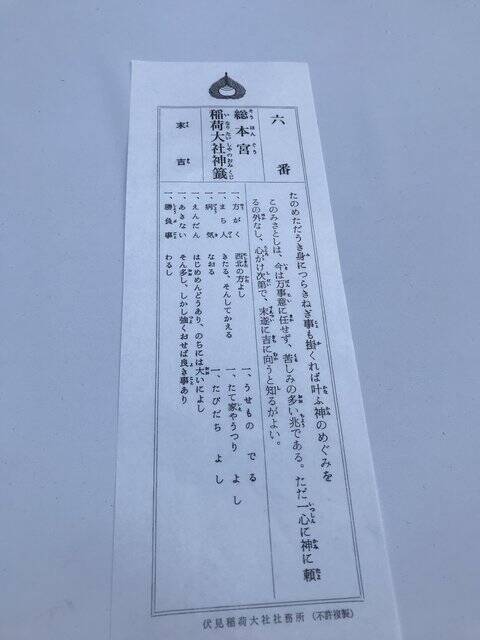 六番
総本宮
稲荷大社神籤
末吉
たのめたゞうき身につらきねぎ事も掛くれば叶ふ神のめぐみを
このみさとしは、今は万事意に任せず、苦しみの多い兆である。ただ一心に神に頼
るの外なし、心がけ次第で、末遂に吉に向うと知るがよい。
一、方がく 西北の方よし
一、まち人 きたる、そんしてかえる
一、病気 なおる
一、えんだん はじめめんどうあり、のちには大いによし
一、あきない そん多し、しかし強くおせば良き事あり
一、勝負事 わるし
一、うせもの でる
一、たて家やうつり よし
一、たびだち よし
伏見稲荷大社社務所 (不許複製)